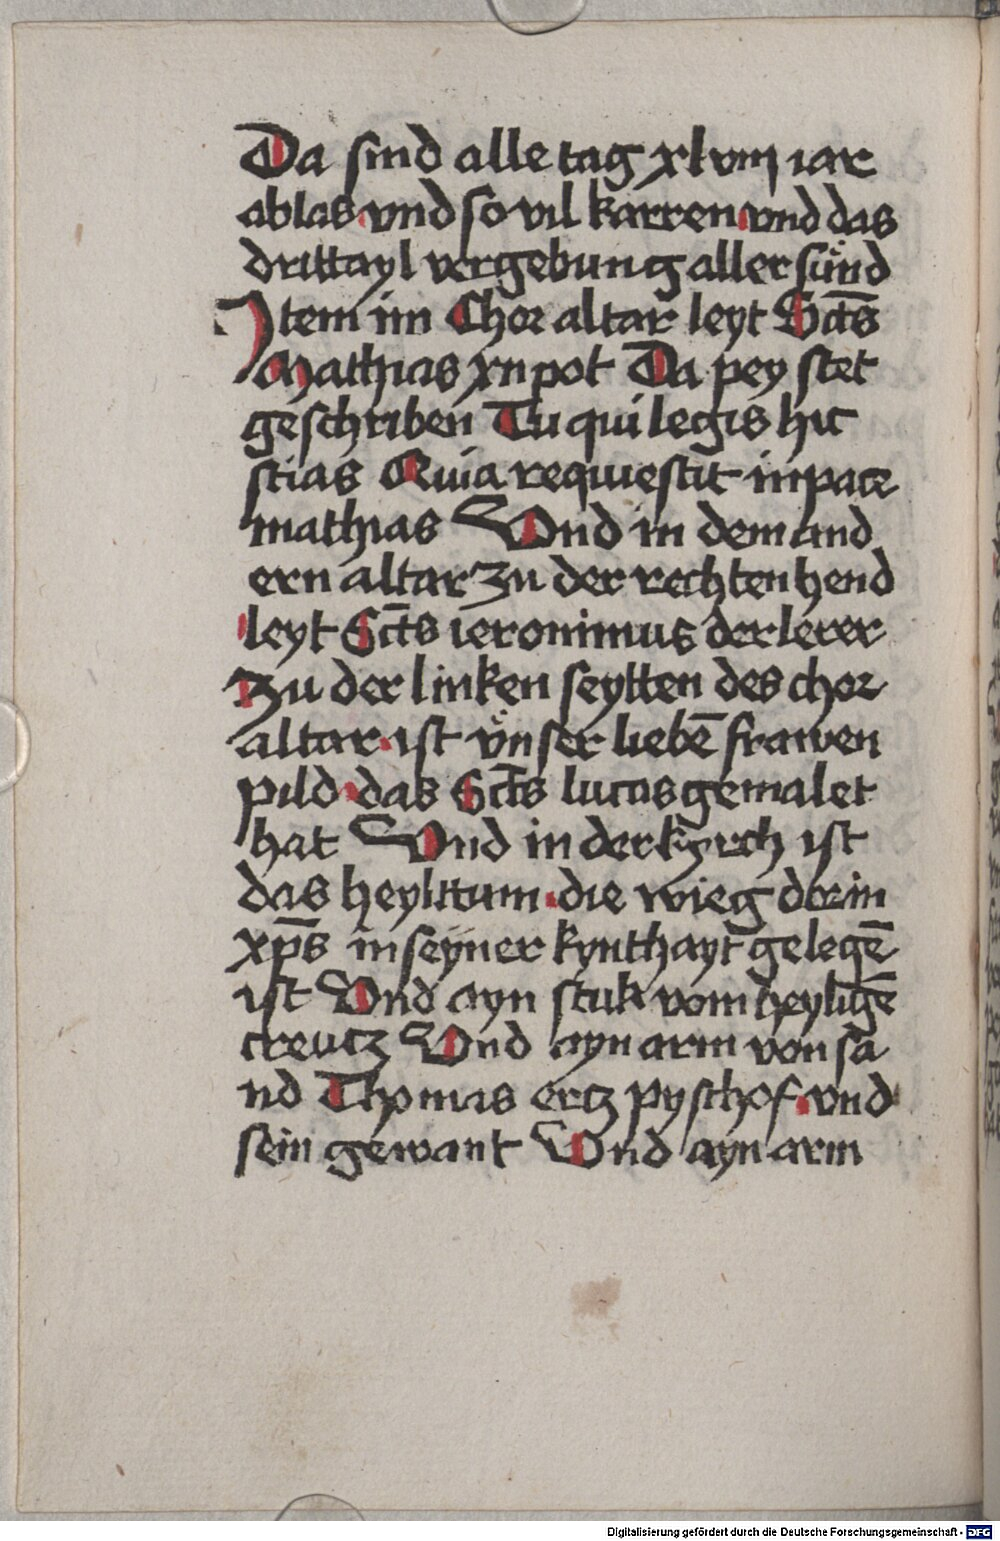 Da sind alle tag xlviij iar
ablas vnd so vil karren vnd das
drittayl vergebung aller suͤnd
Item im Chor altar leyt Sct̄s
Mathias xn pot Da pey stet
geschriben Tu qui legis hic
scias Quia requiescit in pace
mathias Vnd in dem and
ern altar zu der rechten hend
leyt Sct̄s ieronimus der lerer
Zu der linken seytten des chor
altar ist vͦnser liebē frawen
pild das Sct̄s lucas gemalet
hat Vnd in der kyrch ist
das heylttum die wieg dorin
xp̄s in seyner kynthayt gelegē
ist Vnd ayn stuk vom heyligē
creutz Vnd ayn arm von sa
nd Thomas ertz pyschof vnd
sein gewant Vnd ayn arm
Digitalisierung gefördert durch die Deutsche Forschungsgemeinschaft - DFG